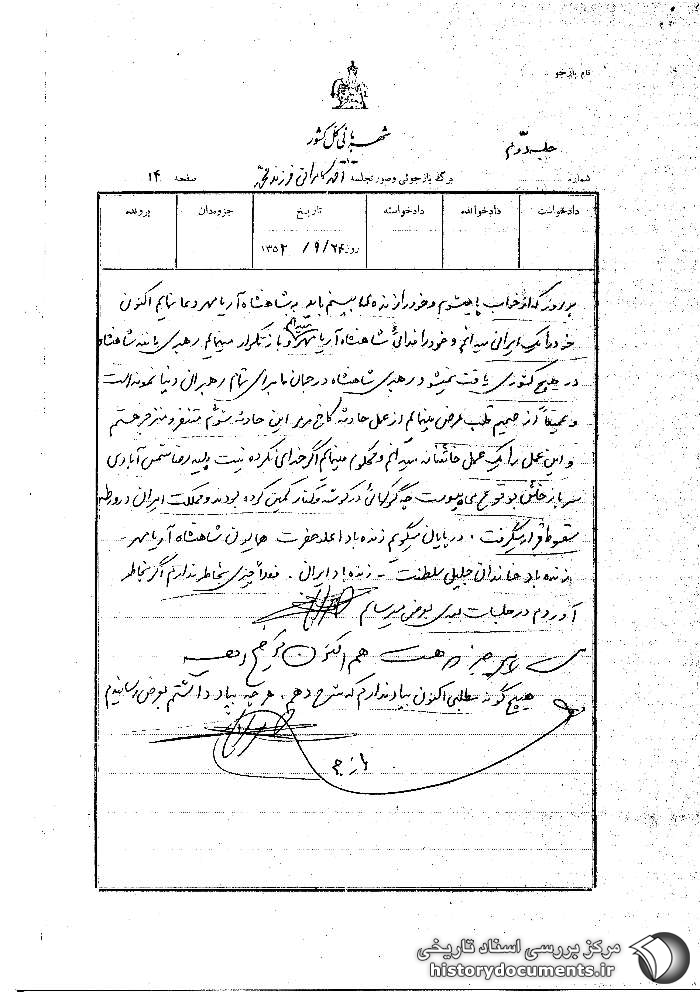 نام بازجو
شهربانی کل کشور
جلسه دوم
شماره
برگه بازجوئی و صورتجلسه آقای کامرانی فرزند محمد صفحه ۱۴
دادخواست دادخوانده دادخواسته تاریخ جزوه‌دان پرونده
روز ۲۴/ ۹/ ۱۳۵۲
هر روز که از خواب پا میشوم و خود را زنده می بینم باید به شاهنشاه آریامهر دعا نمایم اکنون
خود را یک ایرانی میدانم و خود را فدائی شاهنشاه آریامهر میدانم و باز تکرار مینمایم رهبری مانند شاهنشاه
در هیچ کشوری یافت نمیشود رهبری شاهنشاه در جهان ما برای تمام رهبران دنیا نمونه است
و عمیقاً از صمیم قلب عرض مینمایم از عمل حادثه کاخ مرمر این حادثه شوم متنفر و منزجر هستم
و این عمل را یک عمل خائنانه میدانم و محکوم مینمایم اگر خدای نکرده نیت پلید رضا شمس آبادی
سرباز خائن بوقوع می پیوست چه گرگهائی در گوشه و کنار کمین کرده بودند و مملکت ایران در ورطه
سقوط قرار میگرفت . در پایان میگویم زنده باد اعلیحضرت همایون شاهنشاه آریامهر -
زنده باد خاندان جلیل سلطنت - زنده باد ایران . فعلاً چیزی بخاطر ندارم اگر بخاطر
آوردم در جلسات بعدی بعرض میرسانم
هم اکنون
هیچ گونه مطلبی اکنون بیاد ندارم که شرح دهم . هر چه بیاد داشتم بعرض رسانیدم
مرکز بررسی اسناد تاریخی
historydocuments.ir